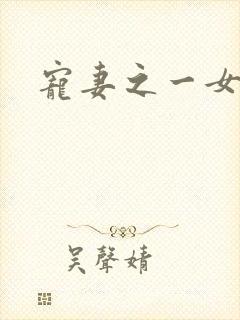 寵妻之一女
吳聲婧